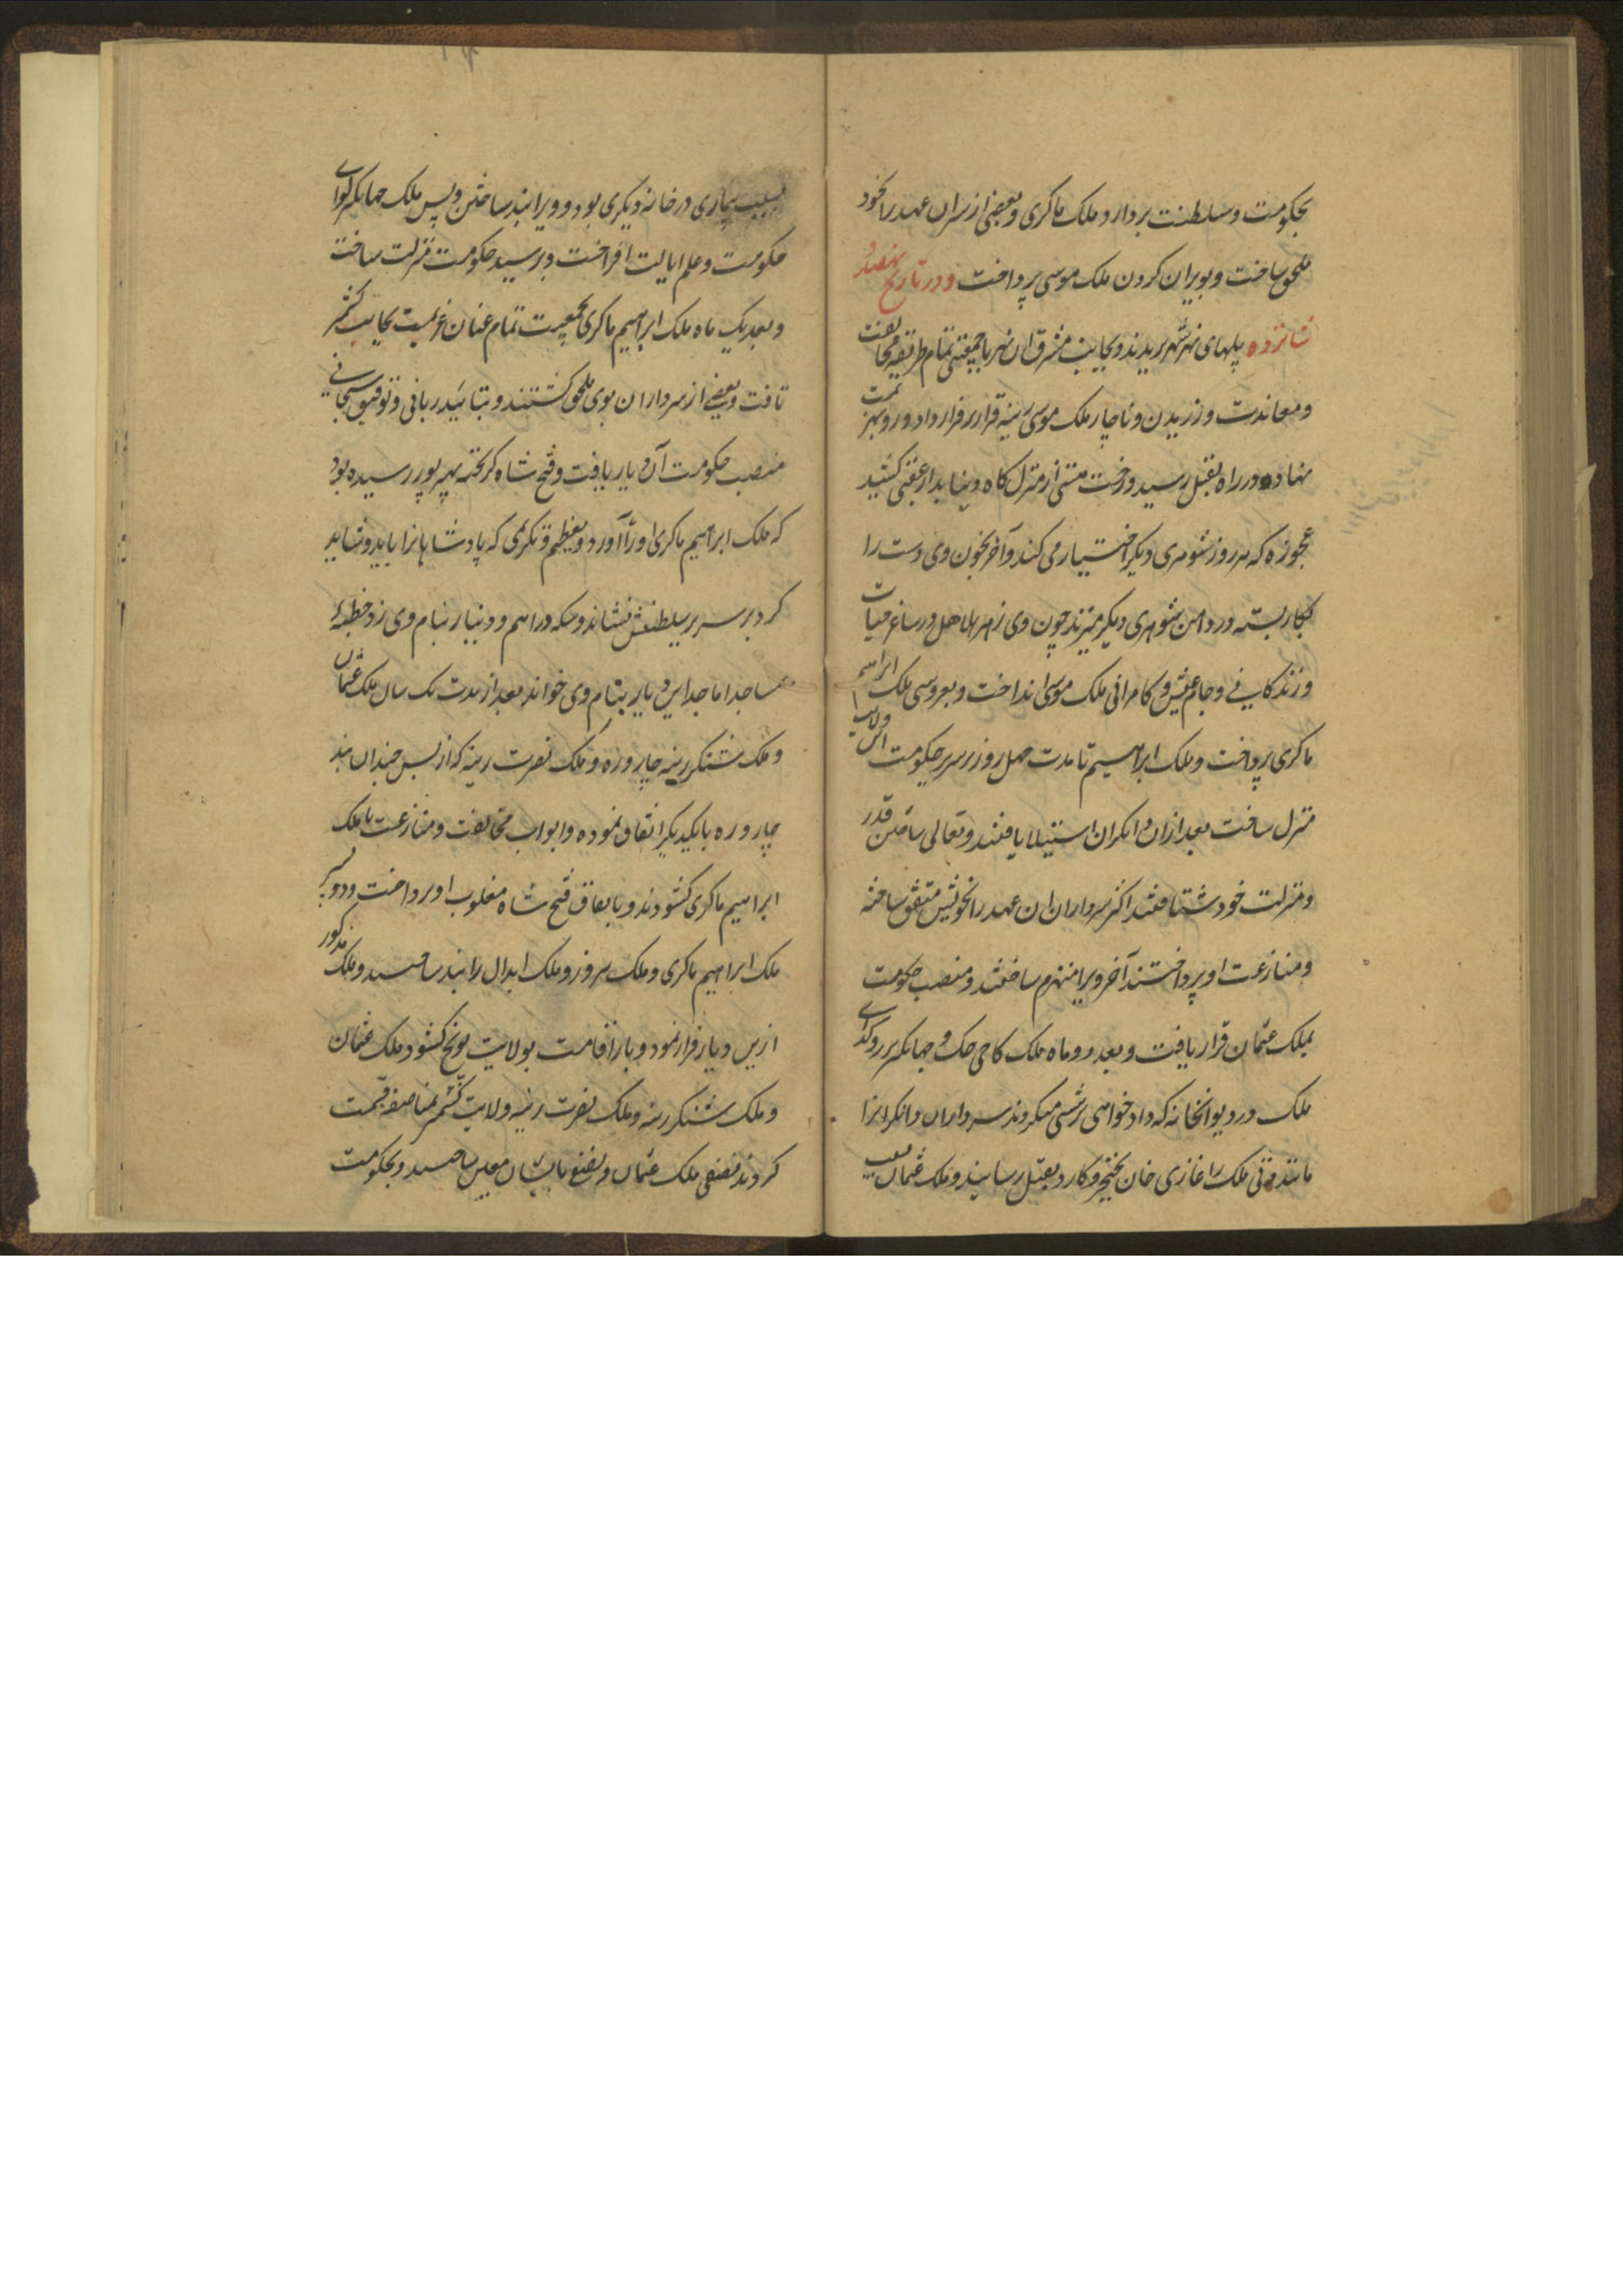 بحکومت وسلطنت بردارد ملک ماکری وبعضی از سران عهد را بخود
ملحق ساخت وبویران کردن ملک موسی پرداخت ودر تاریخ نهصد و
شانزده پلهای نهر شهر بریدند وبجانب مشرق آن نهر باجمعیتی تمام طریقه مخالفت
ومعاندت ورزیدن وناچار ملک موسی رینه قرار بر فرار داد ورو بهزیمت
نهاده در راه بقتل رسید ورخت هستی از منزل کاه دنیا بدار عقبی کشید
عجوزه که هر روز شوهری دیگر اختیار می کند وآخر بخون وی دست را
بکار بسته در دامن شوهری دیگر میزند چون وی زهر هلاهل در ساغر حیات
وزندکانی وجام عیش وکامرانی ملک موسی انداخت وبعروسی ملک ابراهیم
ماکری پرداخت وملک ابراهیم تا مدت چهل روز بر سریر حکومت این ولایت
منزل ساخت بعد ازان دانکران استیلا یافتند وتعالی ساختن قدر
ومنزلت خود شتافتند اکثر سرداران ان عهد را بخویش متفق ساخته
ومنازعت او پرداختند آخر ویرا منهزم ساختند ومنصب حکومت
بملک عثمان قرار یافت وبعد دو ماه ملک کاجی چک وجهانکیر پدرو کدای
ملک در دیوانخانه که داد خواهی پرسشی میکردند سرداران دانکرانرا
مانند دتی ملک را غازی خان بخنجر وکارد بقتل رسانید وملک عثمان بسبب
بسبب بیماری در خانه دیکری بود وویرا بند ساختن وپس ملک جهانکیر لوای
حکومت وعلم ایالت افراخت وبر سید حکومت منزلت ساخت
وبعد یک ماه ملک ابراهیم ماکری بجمعیت تمام عنان عزیمت بجانب کشمیر
تافت وبعضی از سرداران بوی ملحق کشتند وبتائید ربانی وتوفیق سبحانی
منصب حکومت آن دیار یافت وفتح شاه کریخته بهیرپور رسیده بود
که ملک ابراهیم ماکری اورا آورد وبتعظیم وتکریمی که پادشاهانرا باید وشاید
کرد بر سریر سلطنتش نشاند وسکه دراهم ودینار بنام وی زد وخطبهٔ
مساجد اماجد این دیار بنام وی خواند بعد از مدت یک سال ملک عثمان
وملک شنکر رینه چاروره وملک نصرت رینه که از پس چندان بند
چاروره بایکدیکر اتفاق نموده وابواب مخالفت ومنازعت با ملک
ابراهیم ماکری کشودند وباتفاق فتح شاه مغلوب او پرداخت ودو پسر
ملک ابراهیم ماکری وملک سروز وملک ابدال را بند ساختند وملک مذکور
ازین دیار فرار نمود وبار اقامت بولایت پونچ کشود وملک عثمان
وملک شنکر رینه وملک نصرت رینه ولایت کشمیر بمناصفه قسمت
کردند نصفی ملک عثمان ونصفی بایشان معین ساختند وبحکومت